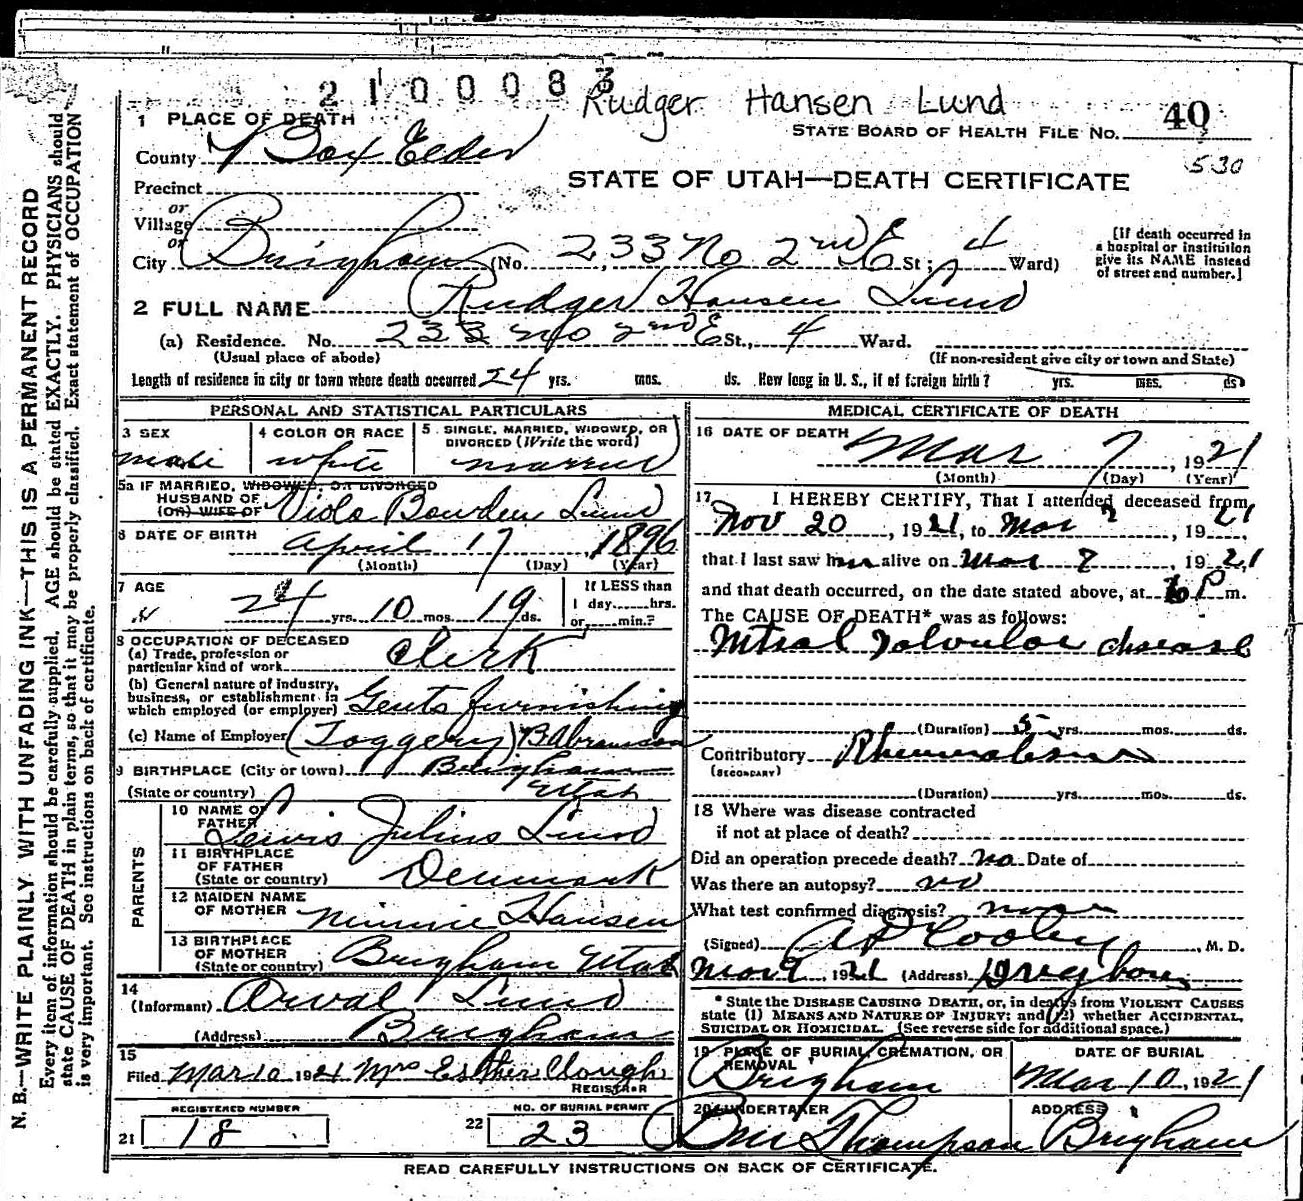 2100083 Rudger Hansen Lund
STATE BOARD OF HEALTH FILE NO. 40
530
STATE OF UTAH—DEATH CERTIFICATE
1 PLACE OF DEATH
County Box Elder
Precinct
or
Village
or
City Brigham (No. 233 No 2nd E St; 4 Ward)
[If death occurred in
a hospital or institution
give its NAME instead
of street and number.]
2 FULL NAME Rudger Hansen Lund
(a) Residence. No. 233 No 2nd E St., 4 Ward.
(Usual place of abode) (If non-resident give city or town and State)
Length of residence in city or town where death occurred 24 yrs. mos. ds. How long in U. S., if of foreign birth? yrs. mos. ds.
PERSONAL AND STATISTICAL PARTICULARS
3 SEX
male
4 COLOR OR RACE
white
5 SINGLE, MARRIED, WIDOWED, OR
DIVORCED (Write the word)
married
5a IF MARRIED, WIDOWED, OR DIVORCED
HUSBAND OF
(OR) WIFE OF Viola Bowden Lund
6 DATE OF BIRTH April 17, 1896
(Month) (Day) (Year)
7 AGE
24 yrs. 10 mos. 19 ds.
If LESS than
1 day......hrs.
or......min.?
8 OCCUPATION OF DECEASED
(a) Trade, profession or
particular kind of work Clerk
(b) General nature of industry,
business, or establishment in
which employed (or employer) Gents furnishing
(c) Name of Employer (Toggery) B Abramson
9 BIRTHPLACE (City or town) Brigham
(State or country) Utah
PARENTS
10 NAME OF
FATHER Lewis Julius Lund
11 BIRTHPLACE
OF FATHER
(State or country) Denmark
12 MAIDEN NAME
OF MOTHER Minnie Hansen
13 BIRTHPLACE
OF MOTHER
(State or country) Brigham Utah
14
(Informant) Orval Lund
(Address) Brigham
15
Filed Mar 10 1921 Mrs Esther Clough
REGISTRAR
REGISTERED NUMBER
21 18
NO. OF BURIAL PERMIT
22 23
MEDICAL CERTIFICATE OF DEATH
16 DATE OF DEATH
Mar 7, 1921
(Month) (Day) (Year)
17 I HEREBY CERTIFY, That I attended deceased from
Nov 20, 1921, to Mar 7, 1921
that I last saw him alive on Mar 7, 1921
and that death occurred, on the date stated above, at 6 P m.
The CAUSE OF DEATH* was as follows:
Mitral Valvular disease
(Duration) 5 yrs. mos. ds.
Contributory Rheumatism
(SECONDARY)
(Duration) yrs. mos. ds.
18 Where was disease contracted
if not at place of death?
Did an operation precede death? no Date of
Was there an autopsy? no
What test confirmed diagnosis? none
(Signed) A P Cooley, M. D.
Mar 9 1921 (Address) Brigham
* State the DISEASE CAUSING DEATH, or, in deaths from VIOLENT CAUSES
state (1) MEANS AND NATURE OF INJURY; and (2) whether ACCIDENTAL,
SUICIDAL OR HOMICIDAL. (See reverse side for additional space.)
19 PLACE OF BURIAL, CREMATION, OR
REMOVAL
Brigham
DATE OF BURIAL
Mar 10, 1921
20 UNDERTAKER
Thompson
ADDRESS
Brigham
READ CAREFULLY INSTRUCTIONS ON BACK OF CERTIFICATE.
N. B.—WRITE PLAINLY WITH UNFADING INK—THIS IS A PERMANENT RECORD
Every item of information should be carefully supplied. AGE should be stated EXACTLY. PHYSICIANS should
state CAUSE OF DEATH in plain terms, so that it may be properly classified. Exact statement of OCCUPATION
is very important. See instructions on back of certificate.